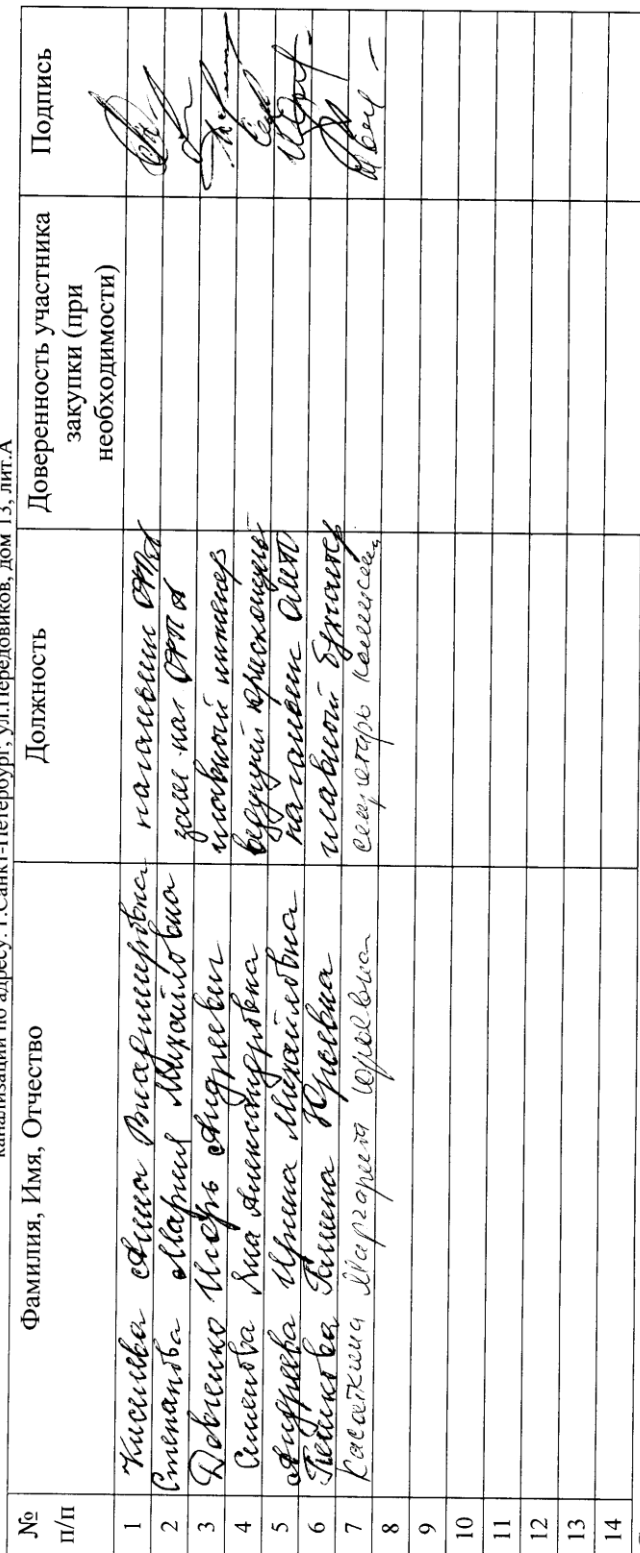 канализации по адресу: г.Санкт-Петербург, ул.Передовиков, дом 13, лит.А
№ п/п Фамилия, Имя, Отчество Должность Доверенность участника закупки (при необходимости) Подпись
1 Киселева Анна Владимировна начальник
2 Степанова Мария Михайловна зам нач
3 Довженко Игорь Андреевич главный инженер
4 Семенова Яна Александровна ведущий юрисконсульт
5 Андреева Ирина Михайловна начальник
6 Галина Юрьевна главный бухгалтер
7 Касаткина Маргарита Юрьевна секретарь комиссии
8
9
10
11
12
13
14